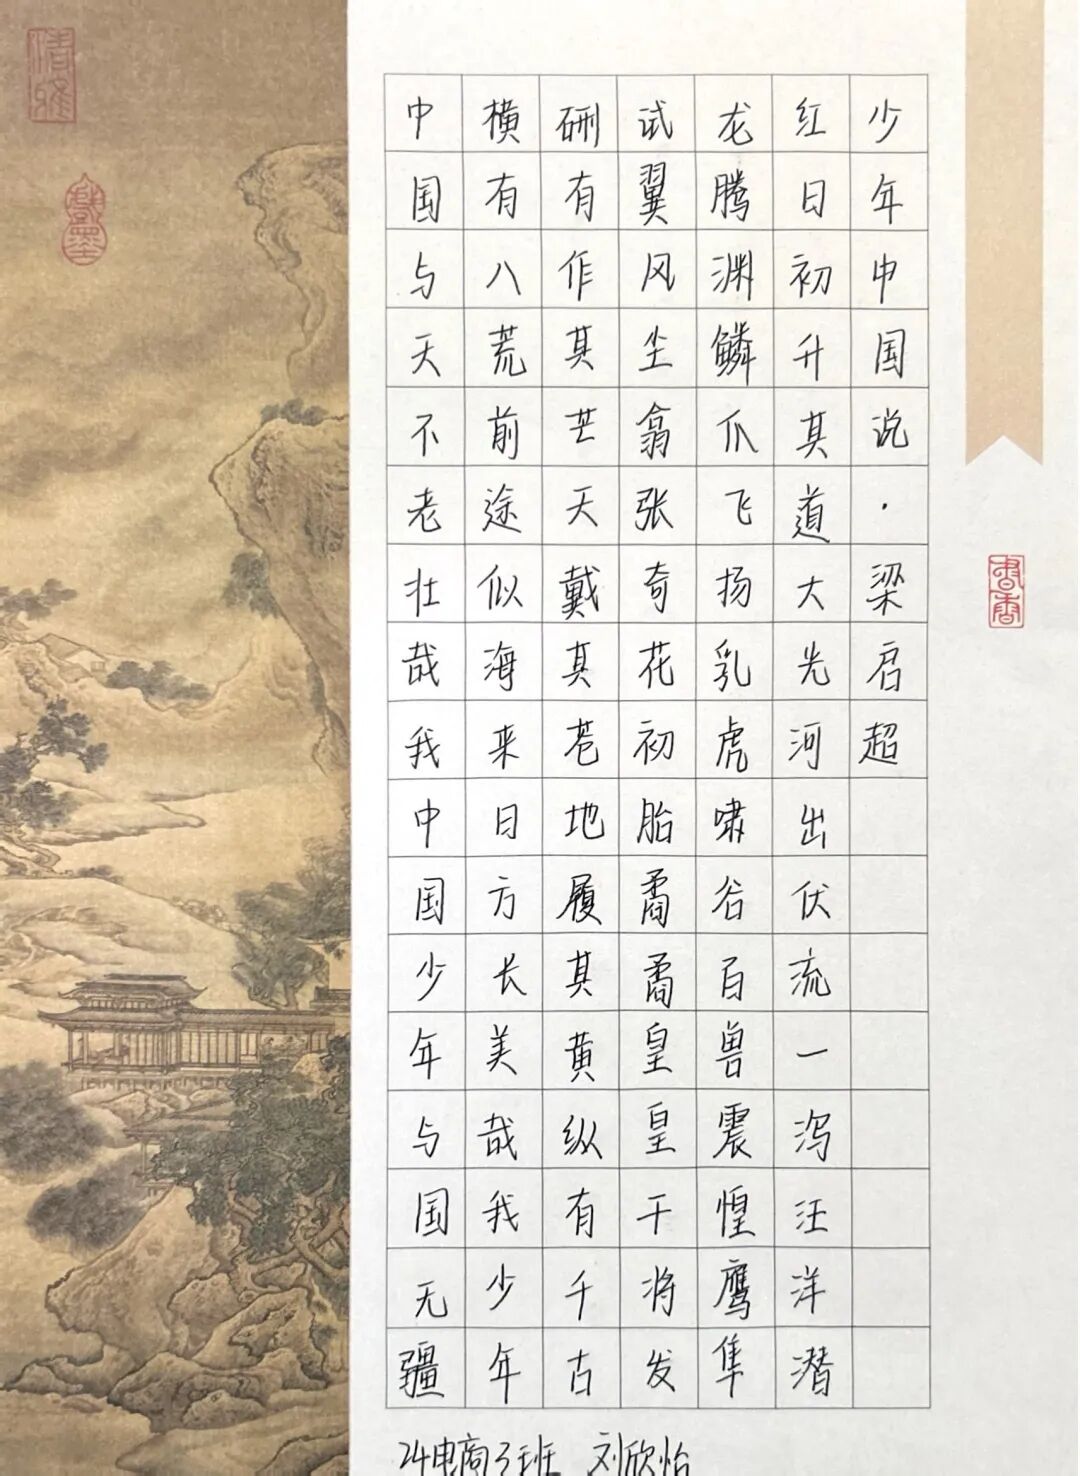 少年中国说·梁启超
红日初升其道大光河出伏流一泻汪洋潜
龙腾渊鳞爪飞扬乳虎啸谷百兽震惶鹰隼
试翼风尘翕张奇花初胎矞矞皇皇干将发
硎有作其芒天戴其苍地履其黄纵有千古
横有八荒前途似海来日方长美哉我少年
中国与天不老壮哉我中国少年与国无疆
24电商3班 刘欣怡
書香
清雅